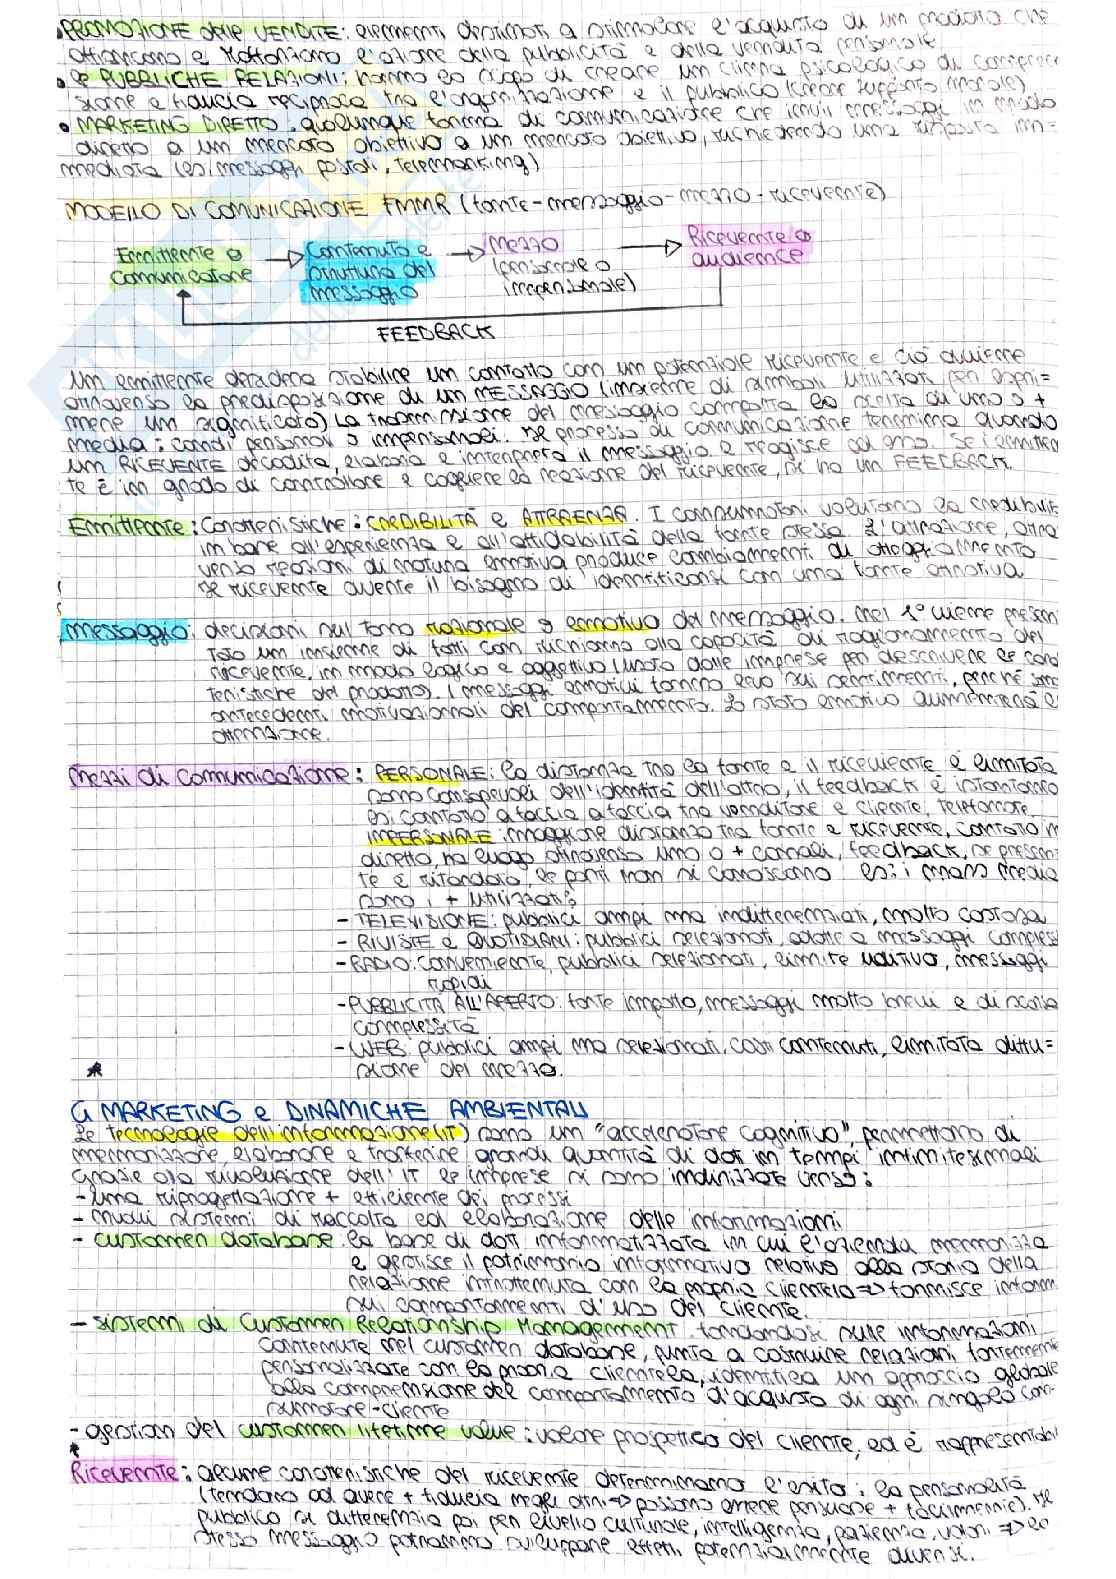 •PROMOZIONE delle VENDITE: elementi destinati a stimolare l'acquisto di un prodotto che
affiancano e rafforzano l'azione della pubblicità e della vendita personale
• le PUBBLICHE RELAZIONI: hanno lo scopo di creare un clima psicologico di compren
sione e fiducia reciproca tra l'organizzazione e il pubblico (creare supporto morale)
• MARKETING DIRETTO: qualunque forma di comunicazione che invii messaggi in modo
diretto a un mercato obiettivo a un mercato obiettivo, richiedendo una risposta im=
mediata (es: messaggi postali, telemarking)
MODELLO DI COMUNICAZIONE FMMR (fonte-messaggio-mezzo-ricevente)
Emittente o
comunicatore
Contenuto e
struttura del
messaggio
Mezzo
(personale o
impersonale)
Ricevente o
audience
FEEDBACK
Un emittente desidera stabilire un contatto con un potenziale ricevente e ciò avviene
attraverso la predisposizione di un MESSAGGIO (insieme di simboli utilizzati per espri=
mere un significato) La trasmissione del messaggio comporta la scelta di uno o +
media: canali personali o impersonali. Il processo di comunicazione termina quando
un RICEVENTE decodifica, elabora e interpreta il messaggio e reagisce ad esso. Se l'emitten
te è in grado di controllare e cogliere la reazione del ricevente, si ha un FEEDBACK
Emittente: caratteristiche: CREDIBILITÀ e ATTRAENZA. I consumatori valutano la credibilit
in base all'esperienza e all'affidabilità della fonte stessa. L'attrazione, attra
verso reazioni di natura emotiva produce cambiamenti di atteggiamento
se ricevente avente il bisogno di identificarsi con una fonte attrattiva
messaggio: decisioni sul tono razionale o emotivo del messaggio. Nel 1° viene presen
tato un insieme di fatti con richiamo alla capacità di ragionamento del
ricevente, in modo logico e oggettivo (usato dalle imprese per descrivere le carat
teristiche del prodotto). I messaggi emotivi fanno leva sui sentimenti, perché sono
antecedenti motivazionali del comportamento. Lo stato emotivo aumenterà l'
attenzione.
mezzi di comunicazione: PERSONALE: la distanza tra la fonte e il ricevente è limitata
sono consapevoli dell'identità dell'altro, il feedback è istantaneo
es: contatto a faccia a faccia tra venditore e cliente, telefonate
IMPERSONALE: maggiore distanza tra fonte e ricevente, contatto in
diretto, ha luogo attraverso uno o + canali, feedback, se presen
te è ritardato, le parti non si conoscono es: i mass media
sono i + utilizzati:
- TELEVISIONE: pubblici ampi ma indifferenziati, molto costosa
- RIVISTE e QUOTIDIANI: pubblici selezionati, adatte a messaggi compless
- RADIO: conveniente, pubblici selezionati, limite uditivo, messaggi
rapidi
- PUBBLICITÀ ALL'APERTO: forte impatto, messaggi molto brevi e di scarsa
complessità
- WEB: pubblici ampi ma selezionati, costi contenuti, limitata diffu=
sione del mezzo.
*
Il MARKETING e DINAMICHE AMBIENTALI
Le tecnologie dell'informazione (IT) sono un "acceleratore cognitivo", permettono di
memorizzare, elaborare e trasferire grandi quantità di dati in tempi infinitesimali
Grazie alla rivoluzione dell'IT le imprese si sono indirizzate verso:
- una riprogettazione + efficiente dei processi
- nuovi sistemi di raccolta ed elaborazione delle informazioni
- customer database: la base di dati informatizzata in cui l'azienda memorizza
e gestisce il patrimonio informativo relativo alla storia della
relazione intrattenuta con la propria clientela => fornisce inform
sui comportamenti d'uso del cliente.
- sistemi di Customer Relationship Management: fondandosi sulle informazioni
contenute nel customer database, punta a costruire relazioni fortemente
personalizzate con la propria clientela, identifica un approccio globale
alla comprensione del comportamento d'acquisto di ogni singolo con-
sumatore-cliente
- gestion del customer lifetime value: valore prospettico del cliente, ed è rappresentabi
*
Ricevente: alcune caratteristiche del ricevente determinano l'esito: la personalità
(tendano ad avere + fiducia negli altri => possono essere persuase + facilmente). Il
pubblico si differenzia poi per livello culturale, intelligenza, pazienza, valori => lo
stesso messaggio potranno sviluppare effetti potenzialmente diversi.